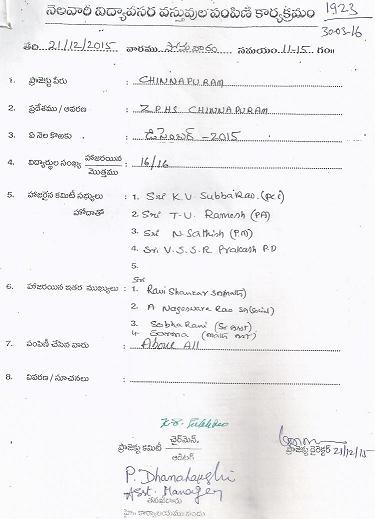 నెలవారీ విద్యావసర వస్తువుల పంపిణీ కార్యక్రమం 1923
30-03-16
తేది. 21/12/2015 వారము సోమవారం సమయం: 11-15 గం॥
1. ప్రాజెక్టు పేరు : CHINNAPURAM
2. ప్రదేశము / ఆవరణ : Z.P.H.S CHINNAPURAM
3. ఏ నెల కొఱకు : డిసెంబర్ -2015
4. విద్యార్థుల సంఖ్య హాజరయిన / మొత్తము : 16/16
5. హాజరైన కమిటీ సభ్యులు : 1. Sri K.V Subba Rao. (PCC)
హోదాతో 2. Sri T.U. Ramesh (PA)
3. Sri N Sathish (PA)
4. Sri V.S.S.R Prakash P.D
5.
6. హాజరయిన ఇతర ముఖ్యులు : 1. Ravi Shankar SA(Maths)
2. A Nageswara Rao SA(Social)
3. Sobha Rani (Sr Asst)
4. (Maths Asst)
7. పంపిణీ చేసిన వారు : Above All
8. వివరణ / సూచనలు :
ప్రాజెక్టు కమిటీ చైర్‌మెన్.
ఆడిటర్
ప్రాజెక్టు డైరెక్టర్ 21/12/15
P. Dhanalakshmi
Asst. Manager
హె. కార్యాలయము నందు